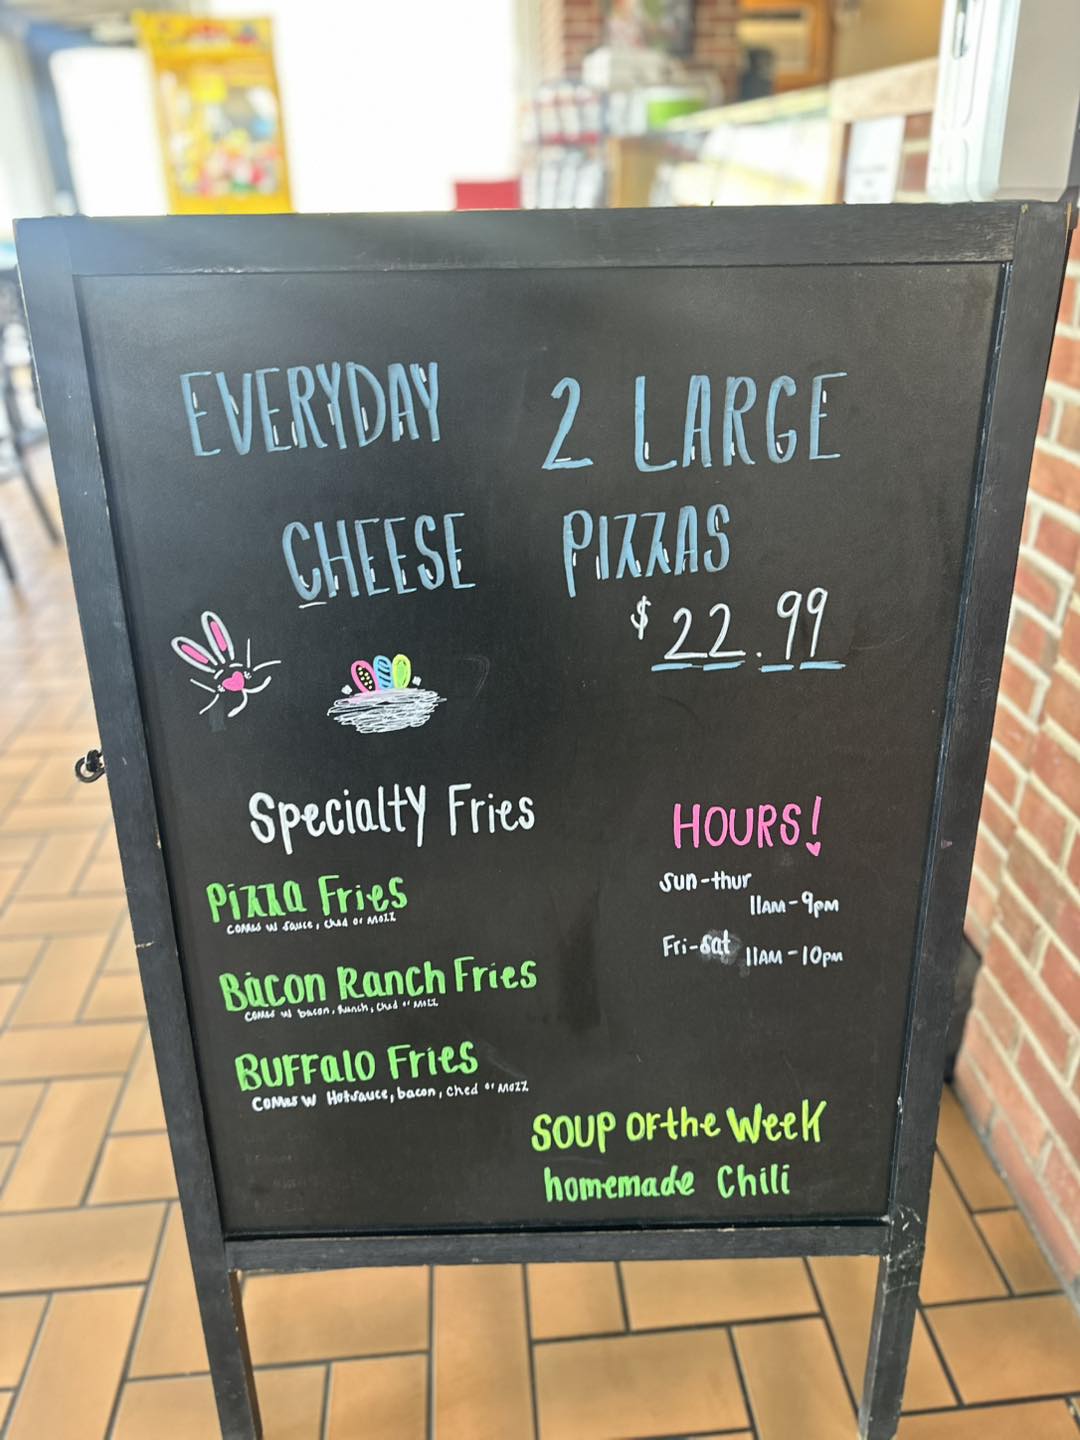 EVERYDAY 2 LARGE
CHEESE PIZZAS
$22.99
Specialty Fries
Pizza Fries
comes w sauce, ched or mozz
Bacon Ranch Fries
comes w bacon, Ranch, ched or mozz
Buffalo Fries
comes w Hotsauce, bacon, ched or mozz
HOURS!
Sun-thur
11AM-9pm
Fri-sat 11AM-10pm
Soup of the Week
homemade Chili